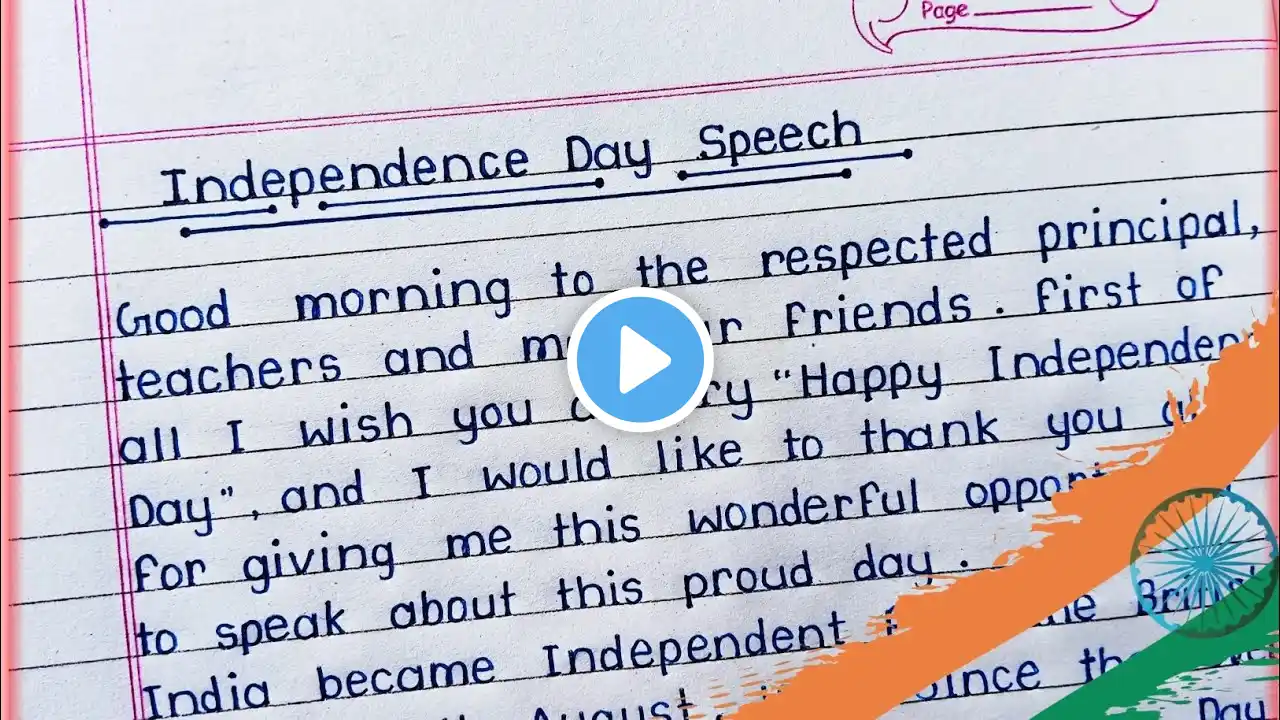 Page
Independence Day Speech
Good morning to the respected principal,
teachers and friends. First of
all I wish you "Happy
Day", and I would like to thank you
for giving me this wonderful
to speak about this proud day.
India became Independent
August, the
Day